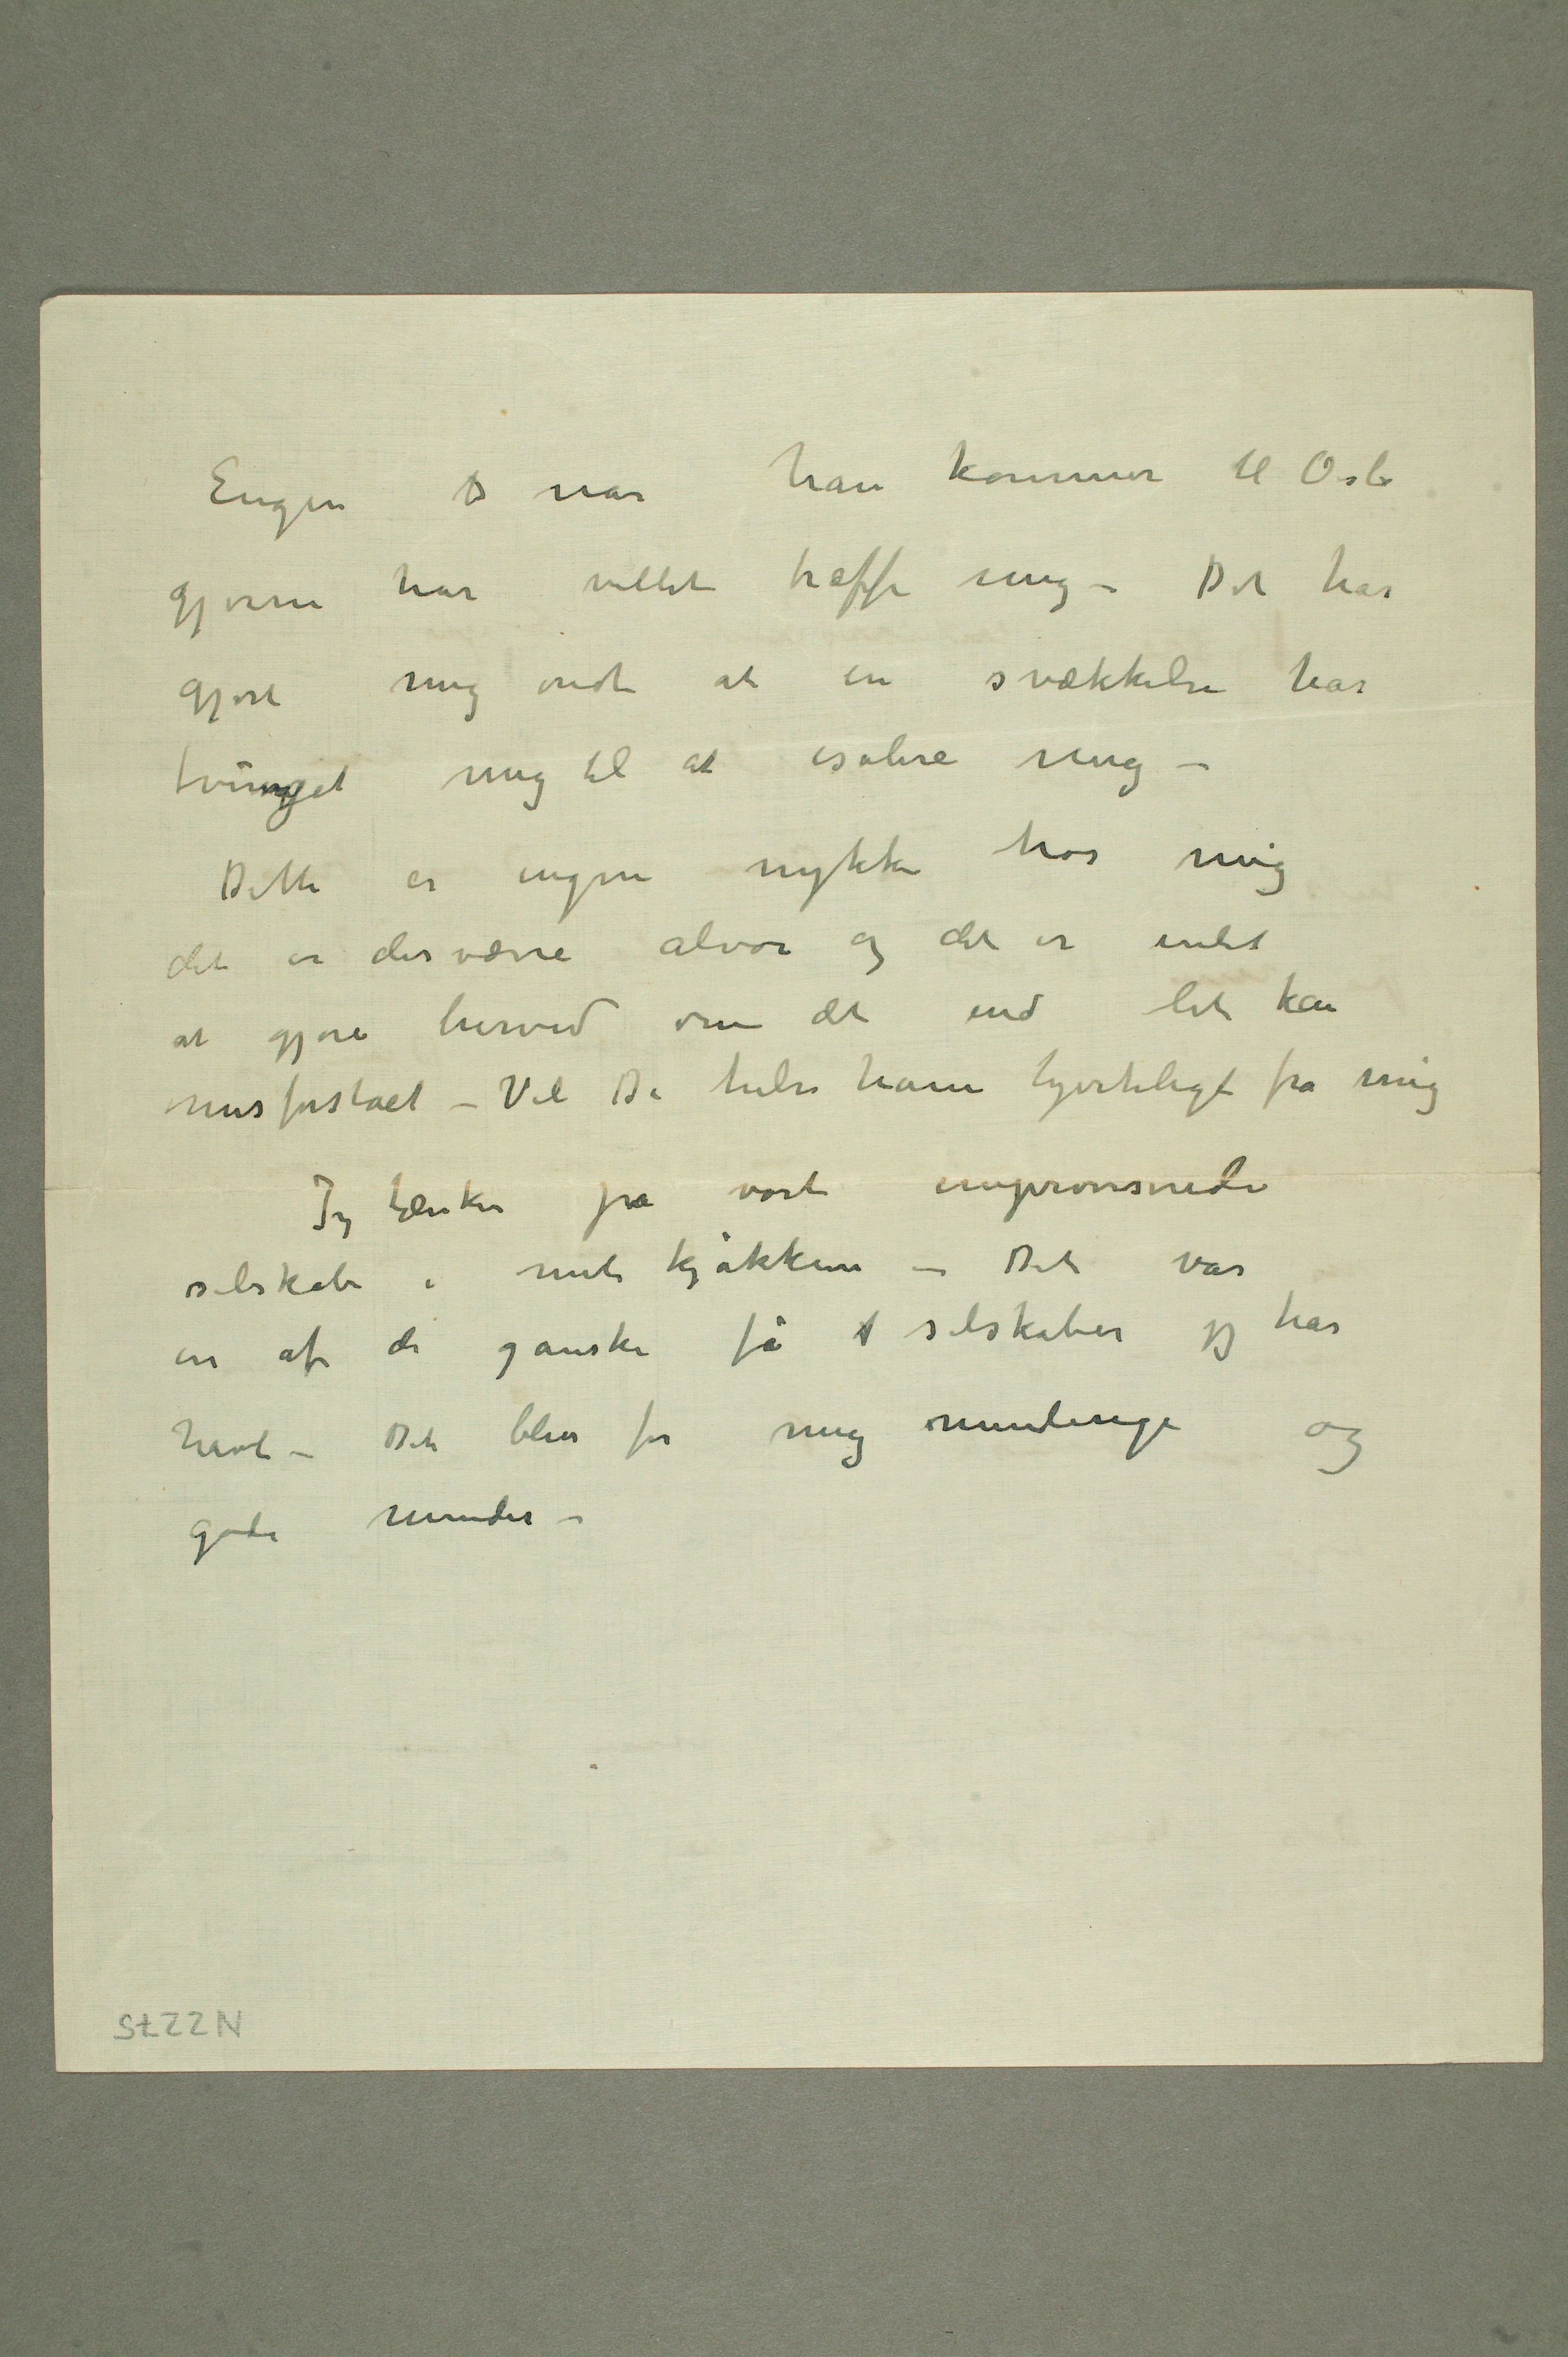 Eugen når han kommer til Oslo
gjerne har villet træffe mig – Det har
gjort mig ondt at en svækkelse har
tvunget mig til at isolere mig –
Dette er ingen nykke hos mig
det er desværre alvor og det er intet
at gjøre herved om det end let kan
misforståes – Vil De hilse ham hjerteligt fra mig
Jeg tænker på vort improviserede
selskab i mit kjøkken – Det var
en af de ganske få selskaber jeg har
havt – Det blev for mig mindeige og
gode minder –
N2275